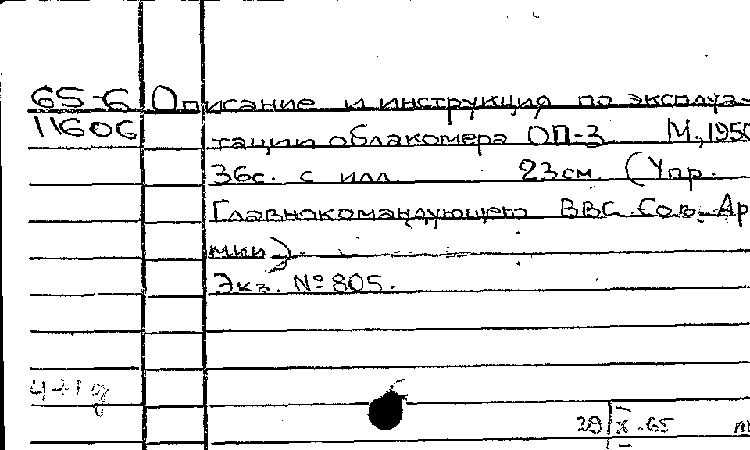 65-6 Описание и инструкция по эксплуа-
11606 тации облакомера ОП-3 М., 1950
36с. с илл. 23см. (Упр.
Главнокомандующего ВВС Сов. Ар
мии)
Экз. № 805.
29/X-65